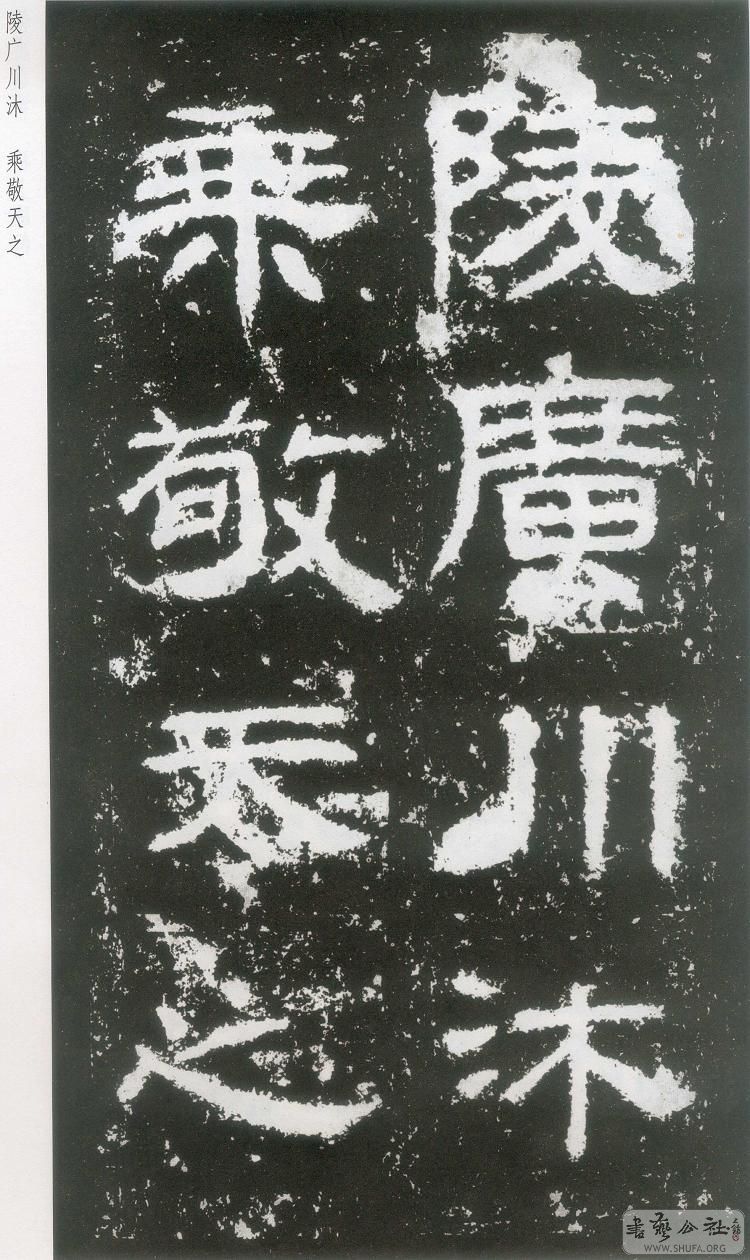 陵廣川沐
乘敬天之
陵广川沐 乘敬天之
書藝公社
WWW.SHUFA.ORG